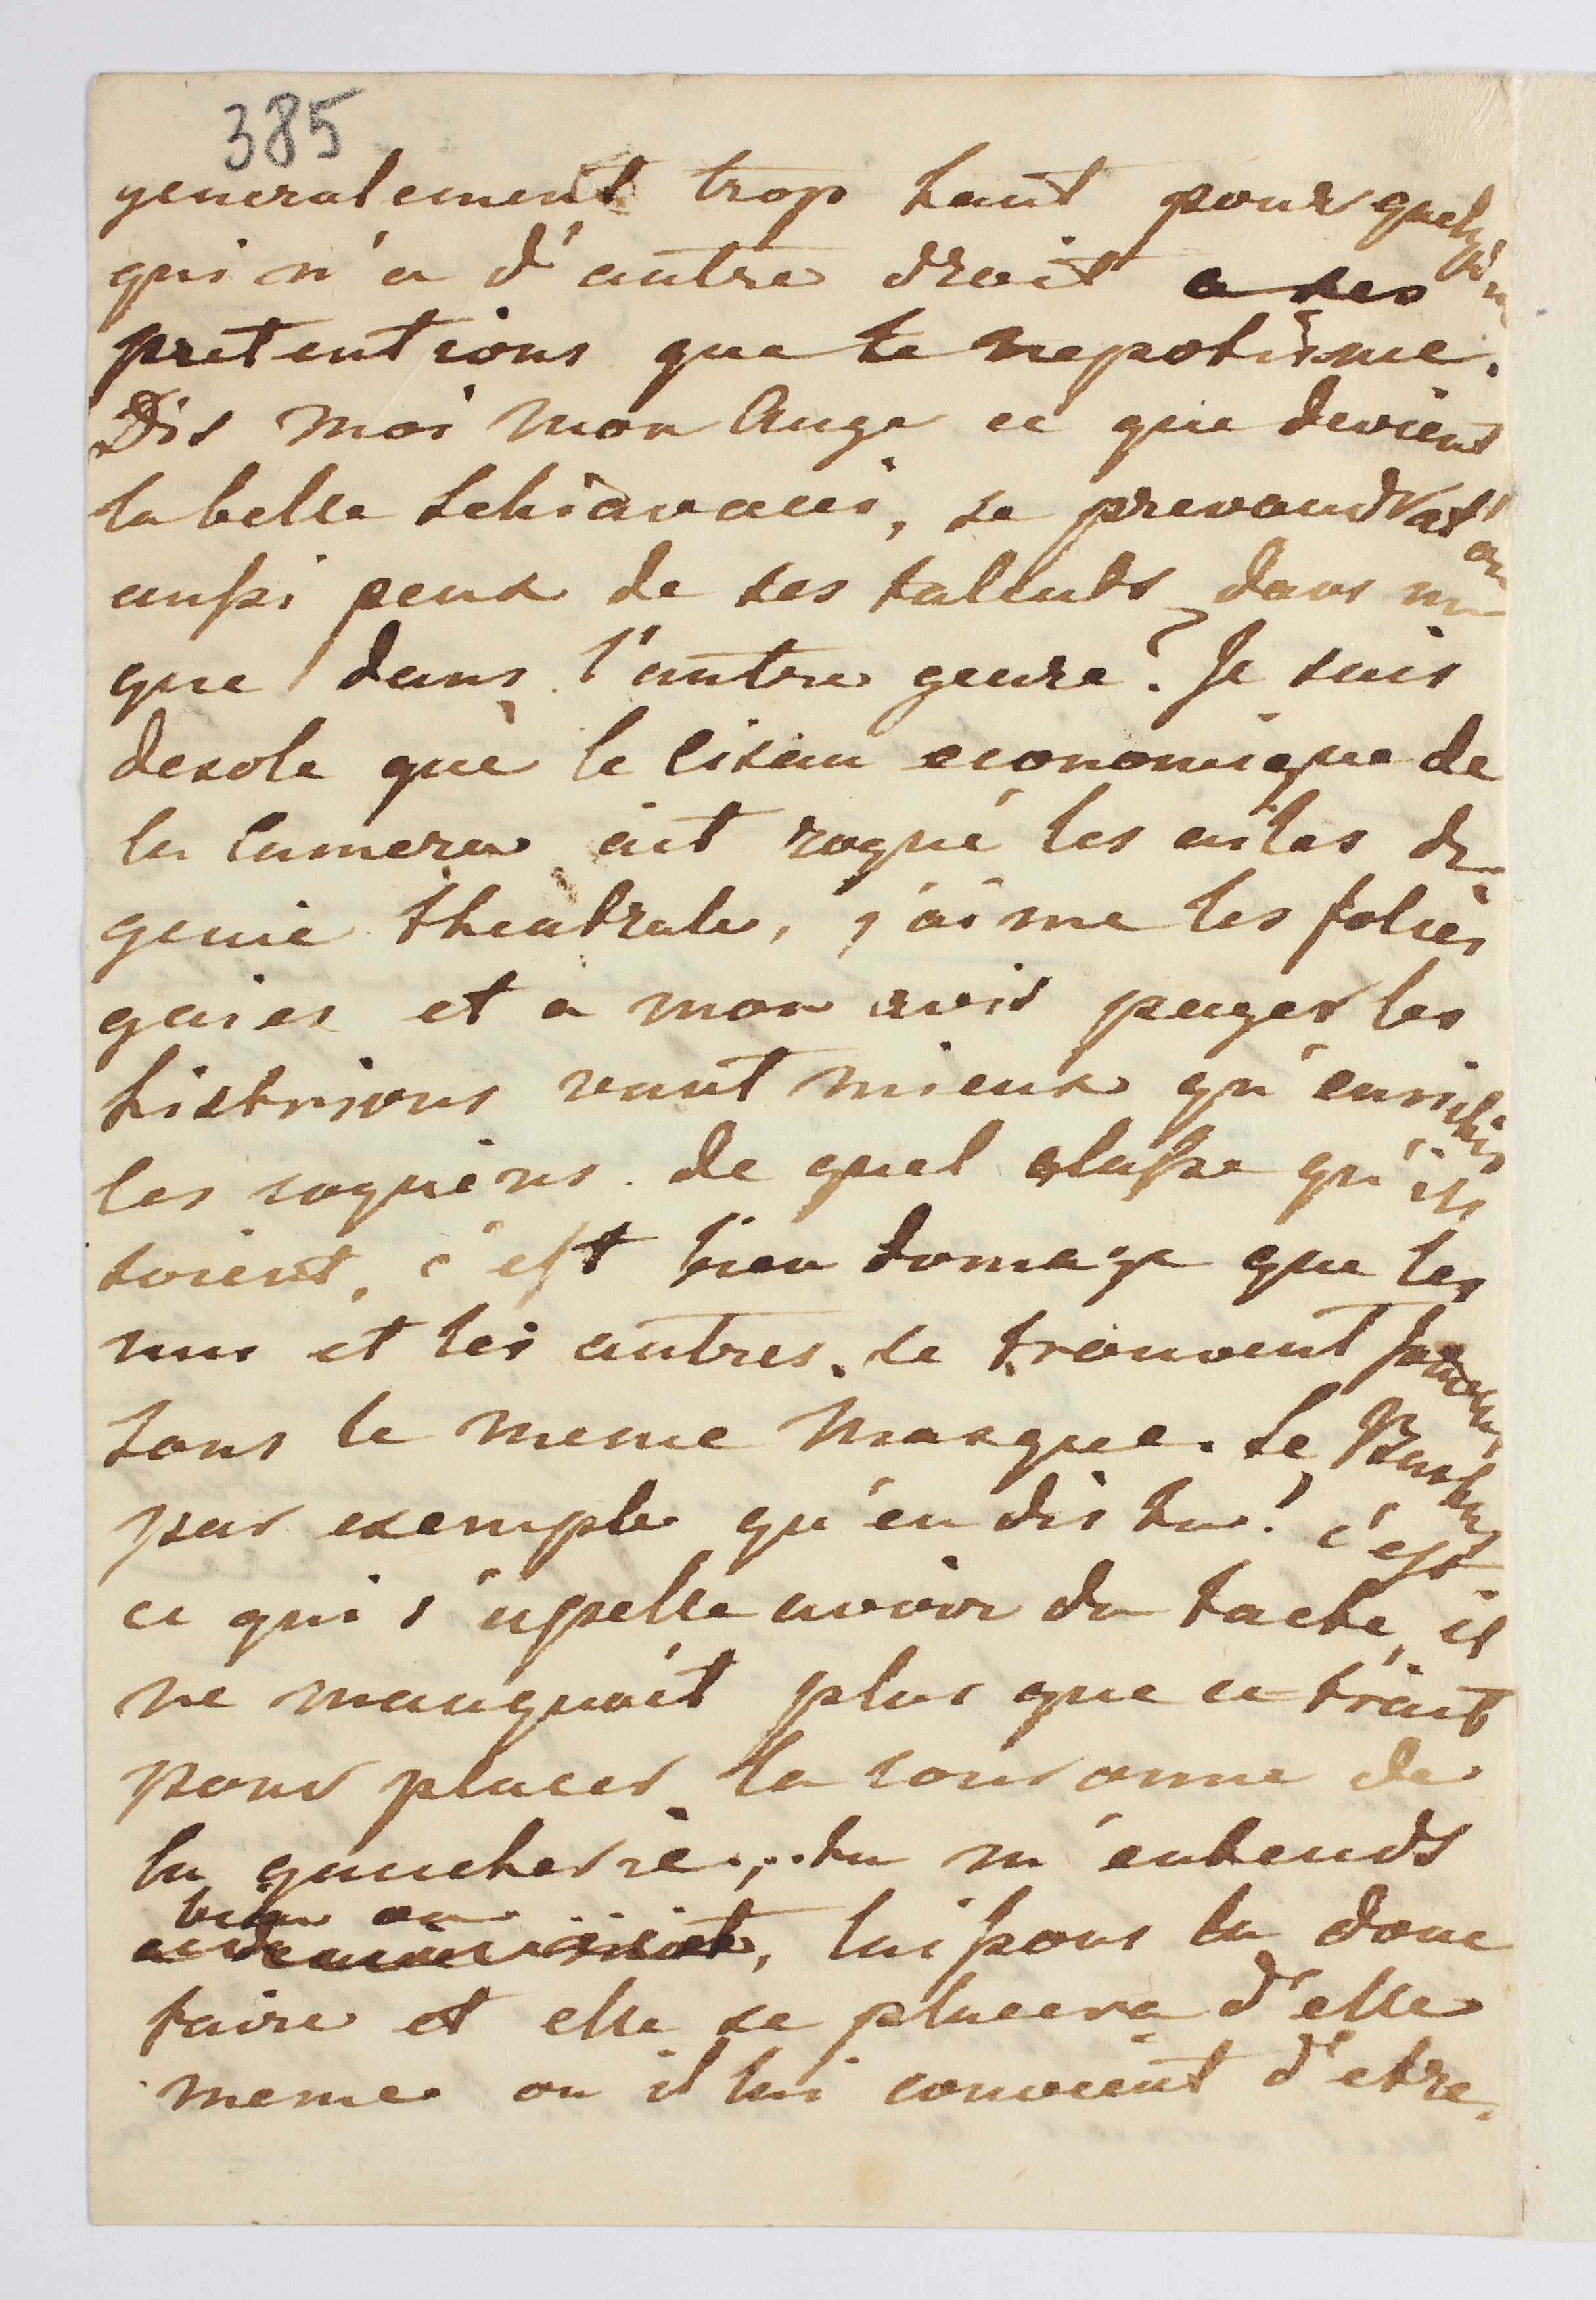 385
generalement trop haut pour quelqu'un
qui n'a d'autre droit a ses
pretentions que le nepotisme.
Dis moi mon Ange ce que devient
la belle Schiavacci, se prevaudrat'on
aussi peux de ses talents dans un
que dans l'autre genre? Je suis
desole que le Ciseau economique de
la Camera ait rogné les ailes du
genie theatrale, j'aime les folies
gaies et a mon avis payer les
histrions vaut mieux qu'enrichir
les coquins de quel classe qu'ils
soient, c'est bien domage que les
uns et les autres se trouvent
sous le meme masque. Le
par exemple qu'en dis tu! c'est
ce qui s'apelle avoir du tacte, il
ne manquait plus que ce trait
pour placer la couronne de
la gaucherie,... tu m'entends
bien ou, laissons la donc
faire et elle se placera d'elle
meme ou il lui convient d'etre.